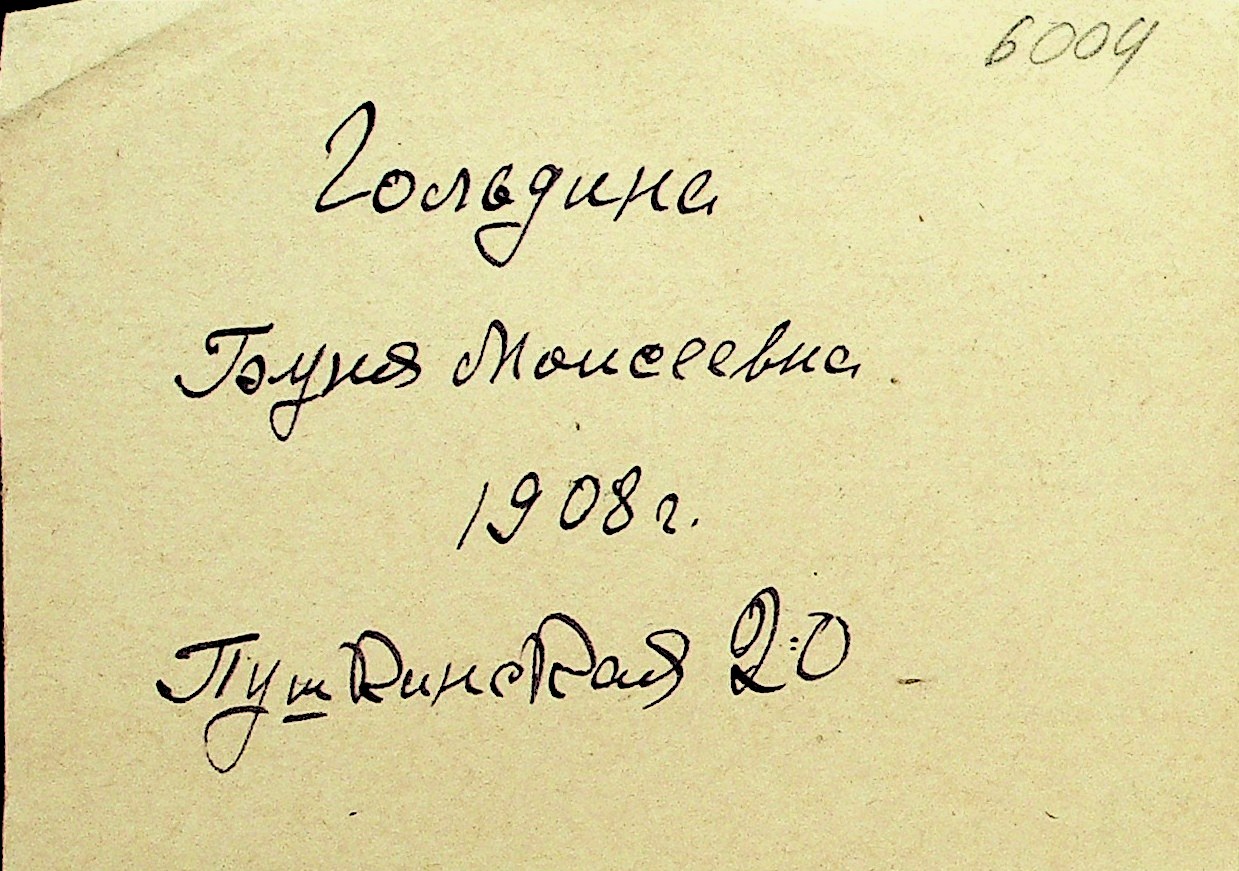 6004
Гольдина
Буня Моисеевна
1908 г.
Пушкинская 20